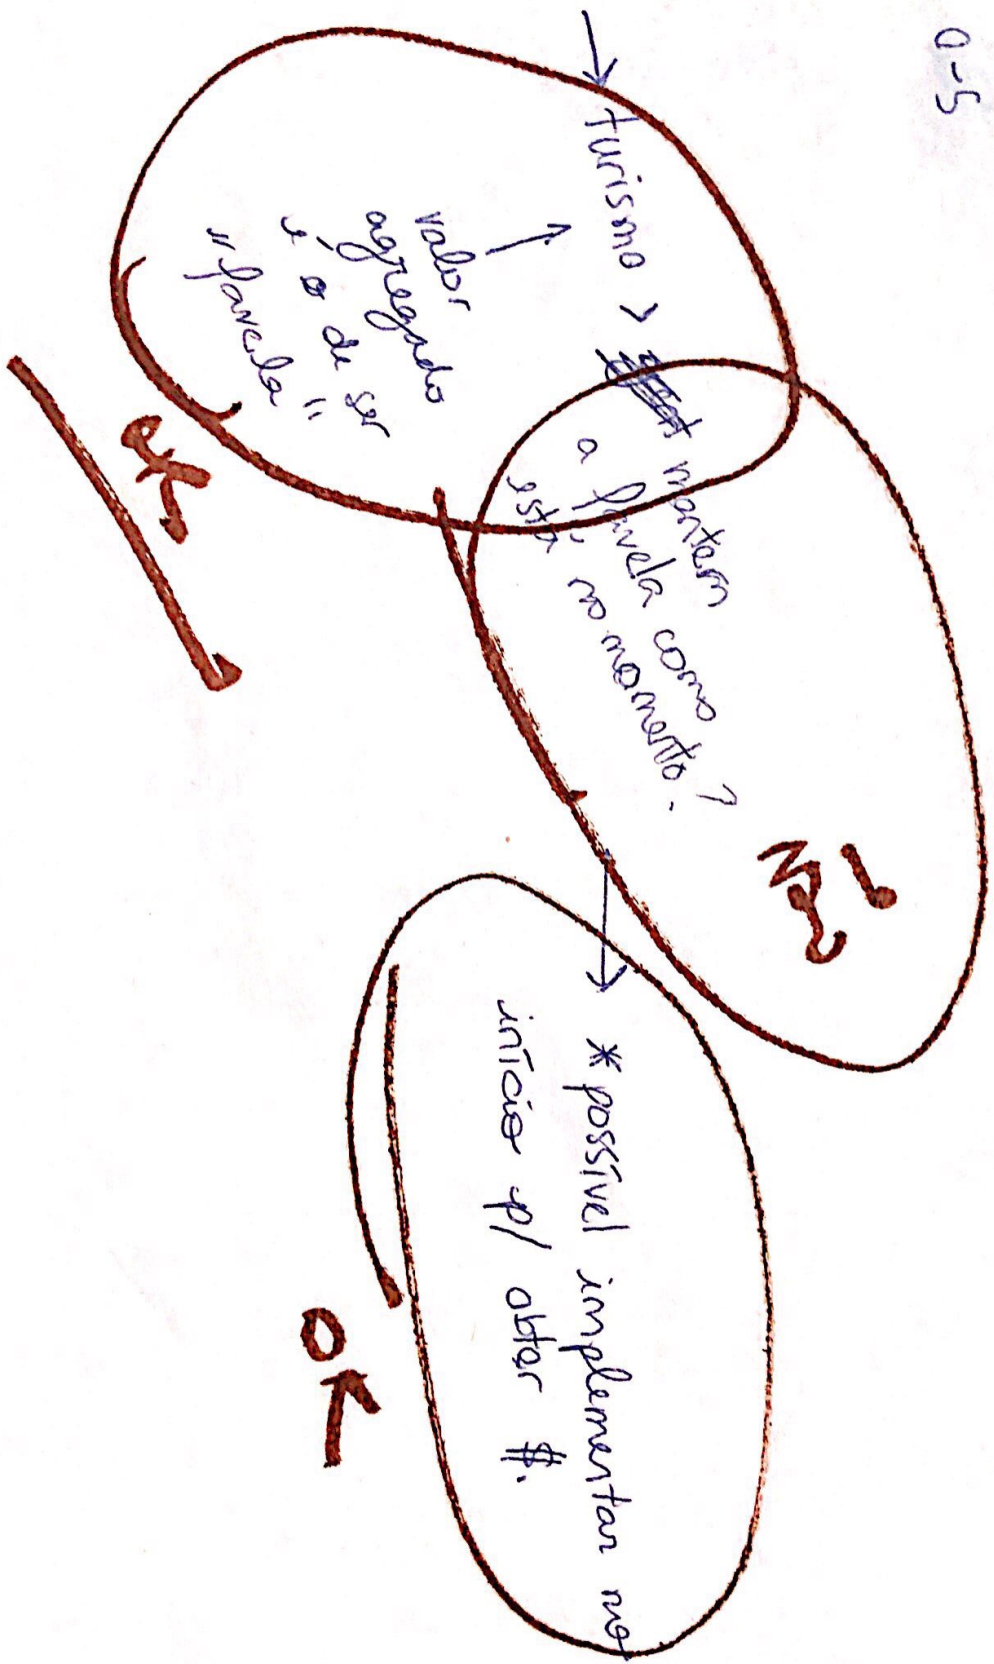 0-5
→ turismo > mantem
a favela como
está no momento. ?
↑
valor
agregado
é o de ser
"favela"
ok
Não!
→ * possível implementar no
início p/ obter $.
OK